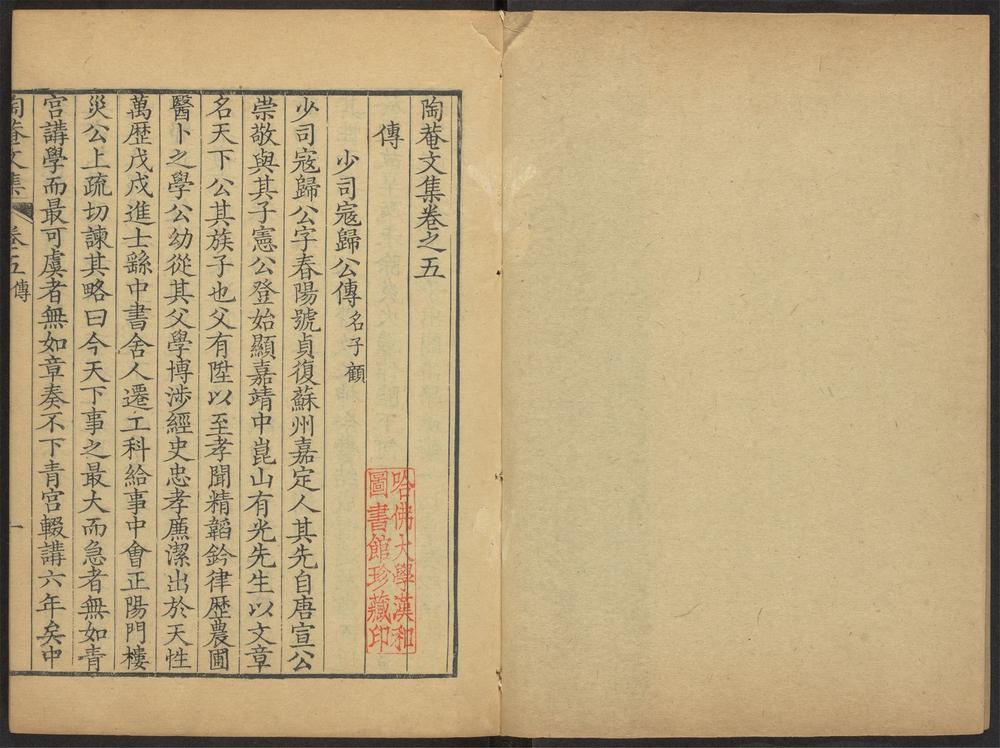 陶菴文集卷之五
傳
少司寇歸公傳名子顧
少司寇歸公字春陽號貞復蘇州嘉定人其先自唐宣公
崇敬與其子憲公登始顯嘉靖中崑山有光先生以文章
名天下公其族子也父有陞以至孝聞精韜鈐律歷農圃
醫卜之學公幼從其父學博涉經史忠孝廉潔出於天性
萬歷戊戌進士繇中書舍人遷工科給事中會正陽門樓
災公上疏切諫其略曰今天下事之最大而急者無如青
宮講學而最可虞者無如章奏不下青宮輟講六年矣中
陶菴文集
卷五傳
一
哈佛大學漢和
圖書館珍藏印